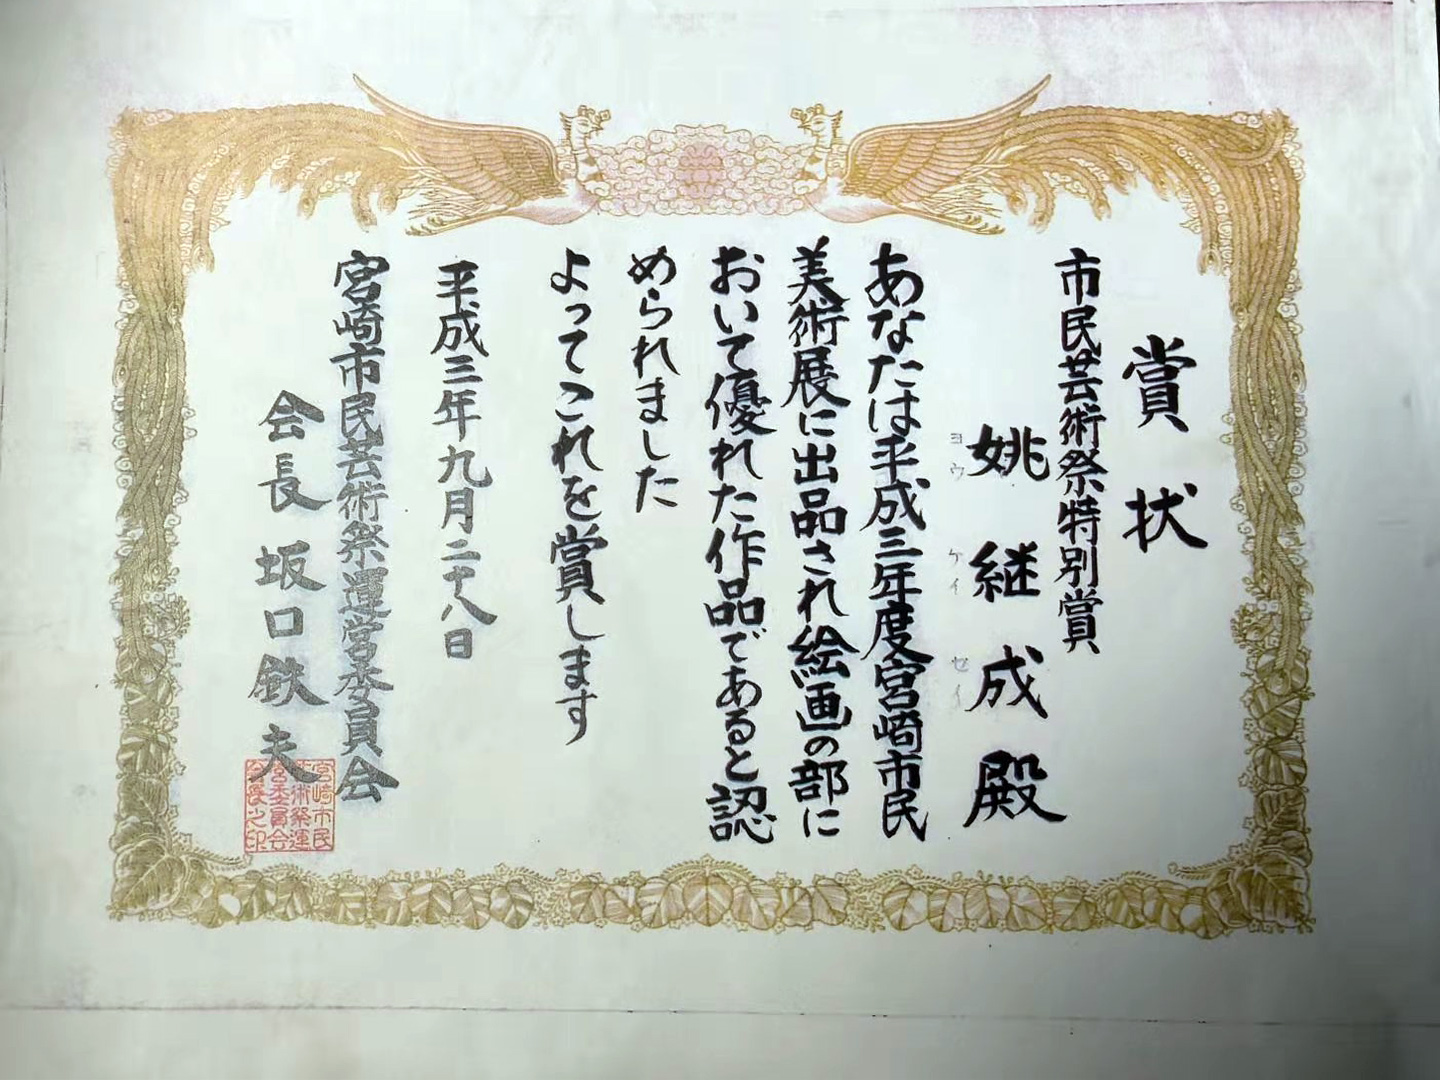 賞状
市民芸術祭特別賞
姚継成殿
ヨウ ケイ セイ
あなたは平成三年度宮崎市民
美術展に出品され絵画の部に
おいて優れた作品であると認
められました
よってこれを賞します
平成三年九月二十八日
宮崎市民芸術祭運営委員会
会長 坂口鉄夫
宮崎市民
芸術祭運
営委員会
会長之印